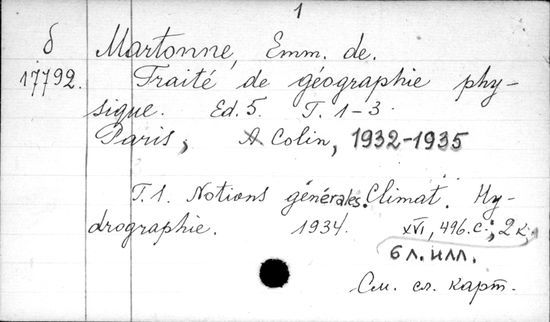 1
б Martonne, Emm. de.
17792. Traité de géographie phy-
sique. Ed. 5. T. 1-3.
Paris, A Colin, 1932-1935
T. 1. Notions générales. Climat. Hy-
drographie. 1934. XVI, 496.c.; 2 к.
6 л. илл.
См. сл. карт.